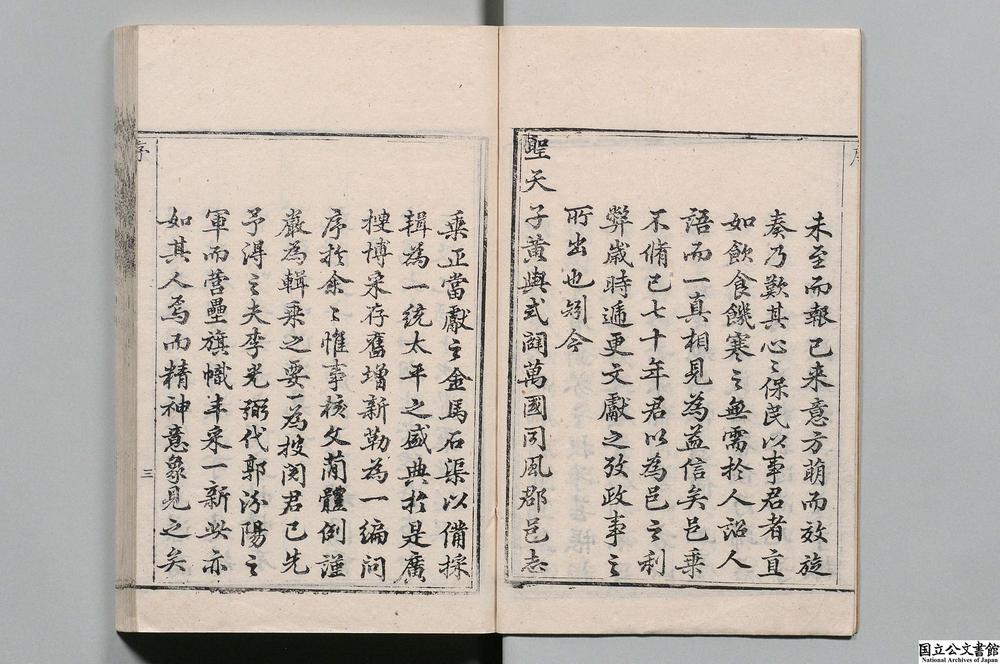 未至而報已来意方萌而效旋
奏乃歎其心之保民以事君者直
如飲食饑寒之無需於人詔人
語而一真相見為益信矣邑乗
不脩已七十年君以為邑之利
弊歲時遞更文獻之攷政事之
所出也矧今
聖天子黃輿式闢萬國同風郡邑志
乗正當獻之金馬石渠以備採
輯為一統太平之盛典於是廣
搜博采存舊增新勒為一編問
序於余々惟事核文簡體例謹
嚴為輯乗之要一為披閱君已先
予得之夫李光弼代郭汾陽之
軍而營壘旗幟丰采一新此亦
如其人焉而精神意象見之矣
序
三
国立公文書館
National Archives of Japan